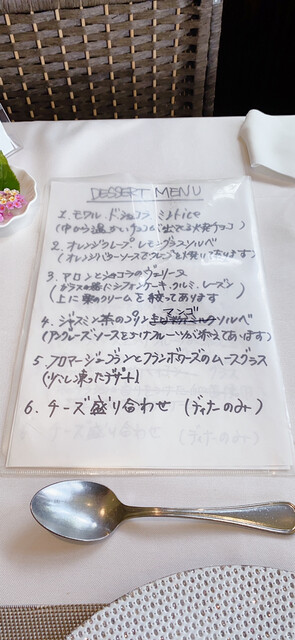 DESSERT MENU
1. モワル ドショコラ
(中から温かいチョコが出てくる焼チョコ)
2. オレンジクレープ レモングラスソルベ
(オレンジバターソースでクレープを焼いてあります)
3. マロンとショコラのヴェリーヌ
(ガラスの器にシフォンケーキ、クルミ、レーズン
上に栗のクリームを絞ってあります)
4. ジャスミン茶のプリン マンゴソルベ
(アングレーズソースとフルーツが添えてあります)
5. フロマージュブランとフランボワーズのムースグラス
(少し凍ったデザート)
6. チーズ盛り合わせ (ディナーのみ)